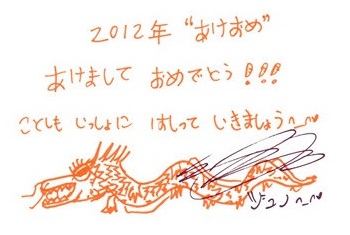 2012年 “あけおめ”
あけまして おめでとう!!!
ことしも いっしょに はしって いきましょう〜♡
ジュン